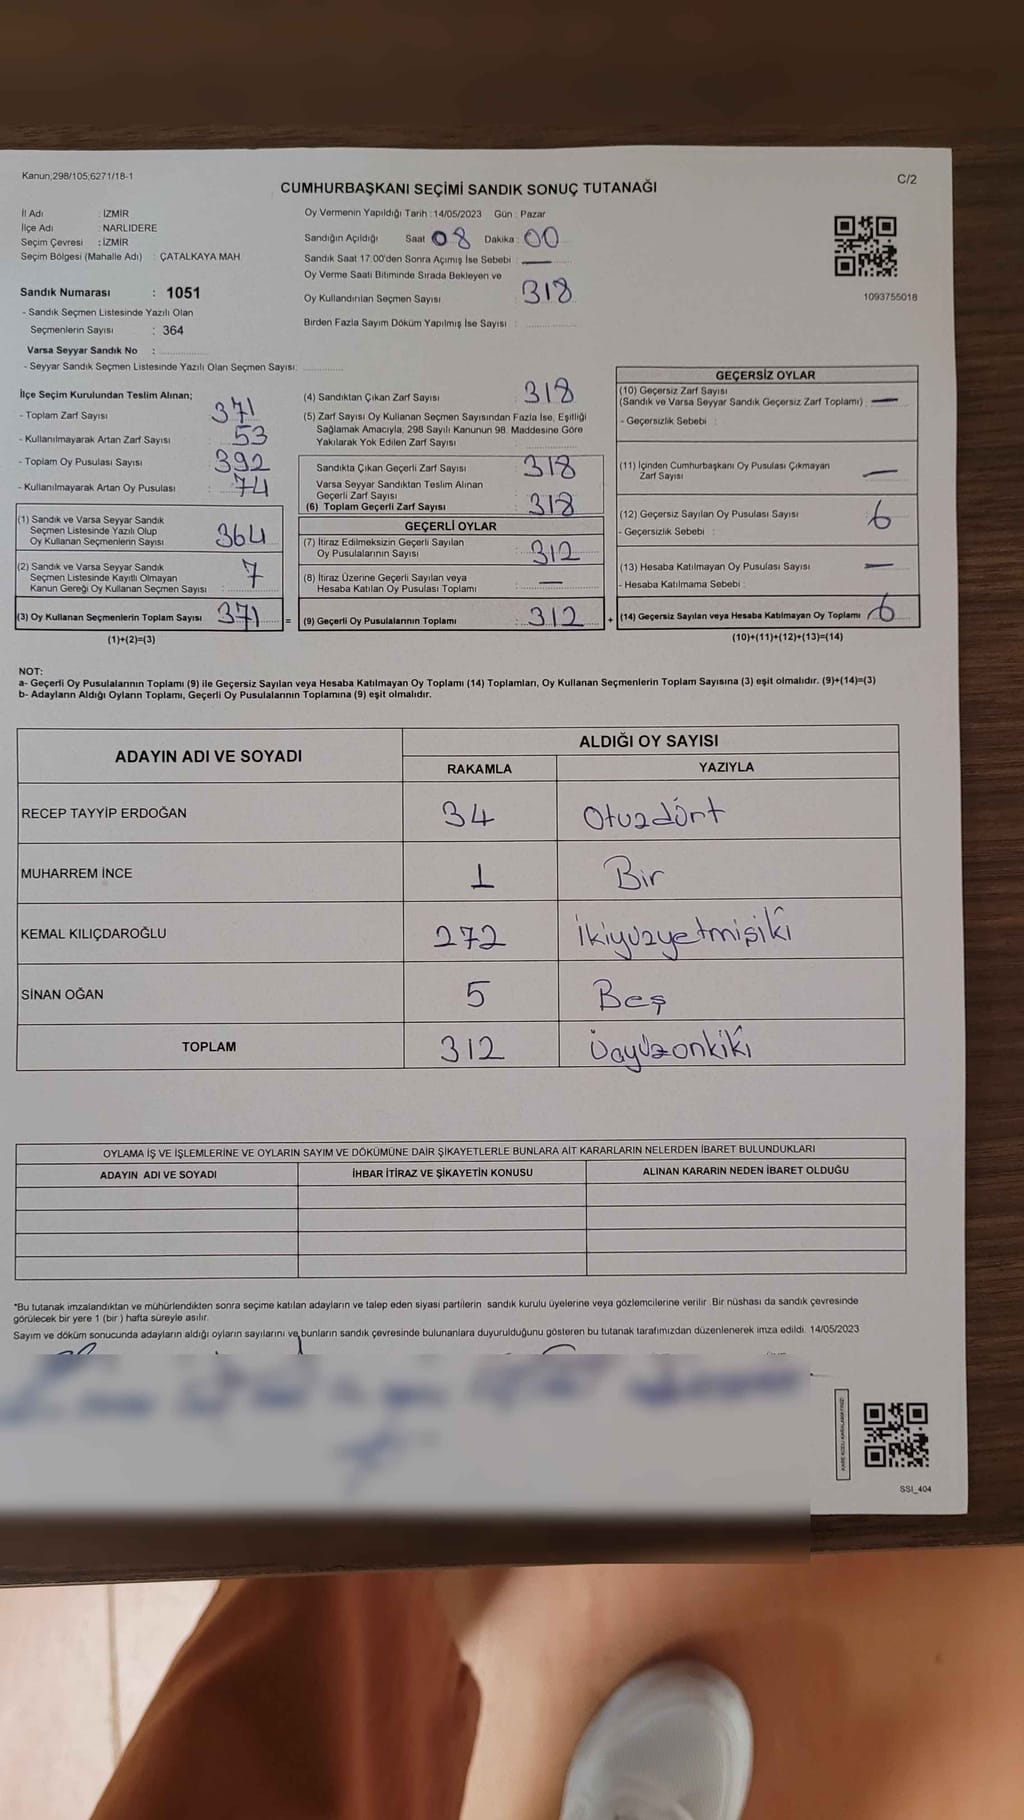 Kanun;298/105;6271/18-1
C/2
CUMHURBAŞKANI SEÇİMİ SANDIK SONUÇ TUTANAĞI
İl Adı : İZMİR
İlçe Adı : NARLIDERE
Seçim Çevresi : İZMİR
Seçim Bölgesi (Mahalle Adı) : ÇATALKAYA MAH.
Sandık Numarası : 1051
- Sandık Seçmen Listesinde Yazılı Olan
Seçmenlerin Sayısı : 364
Varsa Seyyar Sandık No :
- Seyyar Sandık Seçmen Listesinde Yazılı Olan Seçmen Sayısı:
Oy Vermenin Yapıldığı Tarih : 14/05/2023 Gün : Pazar
Sandığın Açıldığı Saat 08 Dakika : 00
Sandık Saat 17.00'den Sonra Açımış İse Sebebi : —
Oy Verme Saati Bitiminde Sırada Bekleyen ve
Oy Kullandırılan Seçmen Sayısı : 318
Birden Fazla Sayım Döküm Yapılmış İse Sayısı :
1093755018
İlçe Seçim Kurulundan Teslim Alınan;
- Toplam Zarf Sayısı : 371
- Kullanılmayarak Artan Zarf Sayısı : 53
- Toplam Oy Pusulası Sayısı : 392
- Kullanılmayarak Artan Oy Pusulası : 74
(1) Sandık ve Varsa Seyyar Sandık
Seçmen Listesinde Yazılı Olup
Oy Kullanan Seçmenlerin Sayısı : 364
(2) Sandık ve Varsa Seyyar Sandık
Seçmen Listesinde Kayıtlı Olmayan
Kanun Gereği Oy Kullanan Seçmen Sayısı : 7
(3) Oy Kullanan Seçmenlerin Toplam Sayısı : 371 =
(1)+(2)=(3)
(4) Sandıktan Çıkan Zarf Sayısı : 318
(5) Zarf Sayısı Oy Kullanan Seçmen Sayısından Fazla İse, Eşitliği
Sağlamak Amacıyla, 298 Sayılı Kanunun 98. Maddesine Göre
Yakılarak Yok Edilen Zarf Sayısı
Sandıkta Çıkan Geçerli Zarf Sayısı : 318
Varsa Seyyar Sandıktan Teslim Alınan
Geçerli Zarf Sayısı
(6) Toplam Geçerli Zarf Sayısı : 318
GEÇERLİ OYLAR
(7) İtiraz Edilmeksizin Geçerli Sayılan
Oy Pusulalarının Sayısı : 312
(8) İtiraz Üzerine Geçerli Sayılan veya
Hesaba Katılan Oy Pusulası Toplamı : —
(9) Geçerli Oy Pusulalarının Toplamı : 312 +
GEÇERSİZ OYLAR
(10) Geçersiz Zarf Sayısı
(Sandık ve Varsa Seyyar Sandık Geçersiz Zarf Toplamı) : —
- Geçersizlik Sebebi :
(11) İçinden Cumhurbaşkanı Oy Pusulası Çıkmayan
Zarf Sayısı : —
(12) Geçersiz Sayılan Oy Pusulası Sayısı : 6
- Geçersizlik Sebebi :
(13) Hesaba Katılmayan Oy Pusulası Sayısı : —
- Hesaba Katılmama Sebebi :
(14) Geçersiz Sayılan veya Hesaba Katılmayan Oy Toplamı : 6
(10)+(11)+(12)+(13)=(14)
NOT:
a- Geçerli Oy Pusulalarının Toplamı (9) ile Geçersiz Sayılan veya Hesaba Katılmayan Oy Toplamı (14) Toplamları, Oy Kullanan Seçmenlerin Toplam Sayısına (3) eşit olmalıdır. (9)+(14)=(3)
b- Adayların Aldığı Oyların Toplamı, Geçerli Oy Pusulalarının Toplamına (9) eşit olmalıdır.
ADAYIN ADI VE SOYADI ALDIĞI OY SAYISI
RAKAMLA YAZIYLA
RECEP TAYYİP ERDOĞAN 34 Otuzdört
MUHARREM İNCE 1 Bir
KEMAL KILIÇDAROĞLU 272 İkiyüzyetmişiki
SİNAN OĞAN 5 Beş
TOPLAM 312 Üçyüzonkiki
OYLAMA İŞ VE İŞLEMLERİNE VE OYLARIN SAYIM VE DÖKÜMÜNE DAİR ŞİKAYETLERLE BUNLARA AİT KARARLARIN NELERDEN İBARET BULUNDUKLARI
ADAYIN ADI VE SOYADI İHBAR İTİRAZ VE ŞİKAYETİN KONUSU ALINAN KARARIN NEDEN İBARET OLDUĞU
*Bu tutanak imzalandıktan ve mühürlendikten sonra seçime katılan adayların ve talep eden siyasi partilerin sandık kurulu üyelerine veya gözlemcilerine verilir. Bir nüshası da sandık çevresinde
görülecek bir yere 1 (bir ) hafta süreyle asılır.
Sayım ve döküm sonucunda adayların aldığı oyların sayılarını ve bunların sandık çevresinde bulunanlara duyurulduğunu gösteren bu tutanak tarafımızdan düzenlenerek imza edildi. 14/05/2023
SSI_404